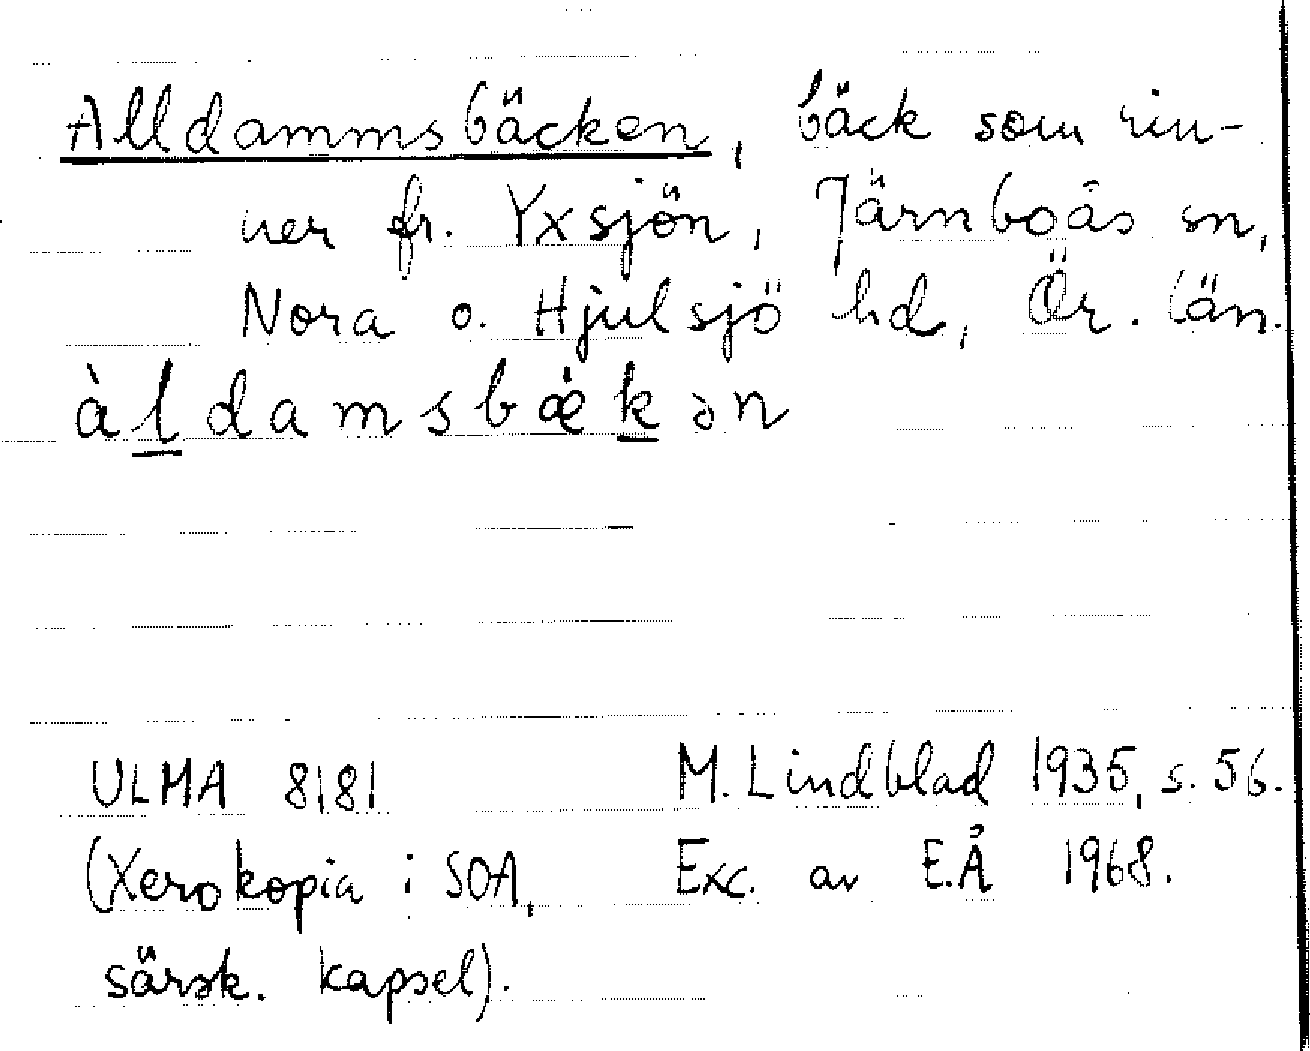 Alldammsbäcken, bäck som rin-
ner fr. Yxsjön, Järnboås sn,
Nora o. Hjulsjö hd, Ör. län.
àldamsbæ̀kən
ULMA 8181 M. Lindblad 1935, s. 56.
(Xerokopia i SOA, Exc. av E.Å 1968.
särsk. kapsel).